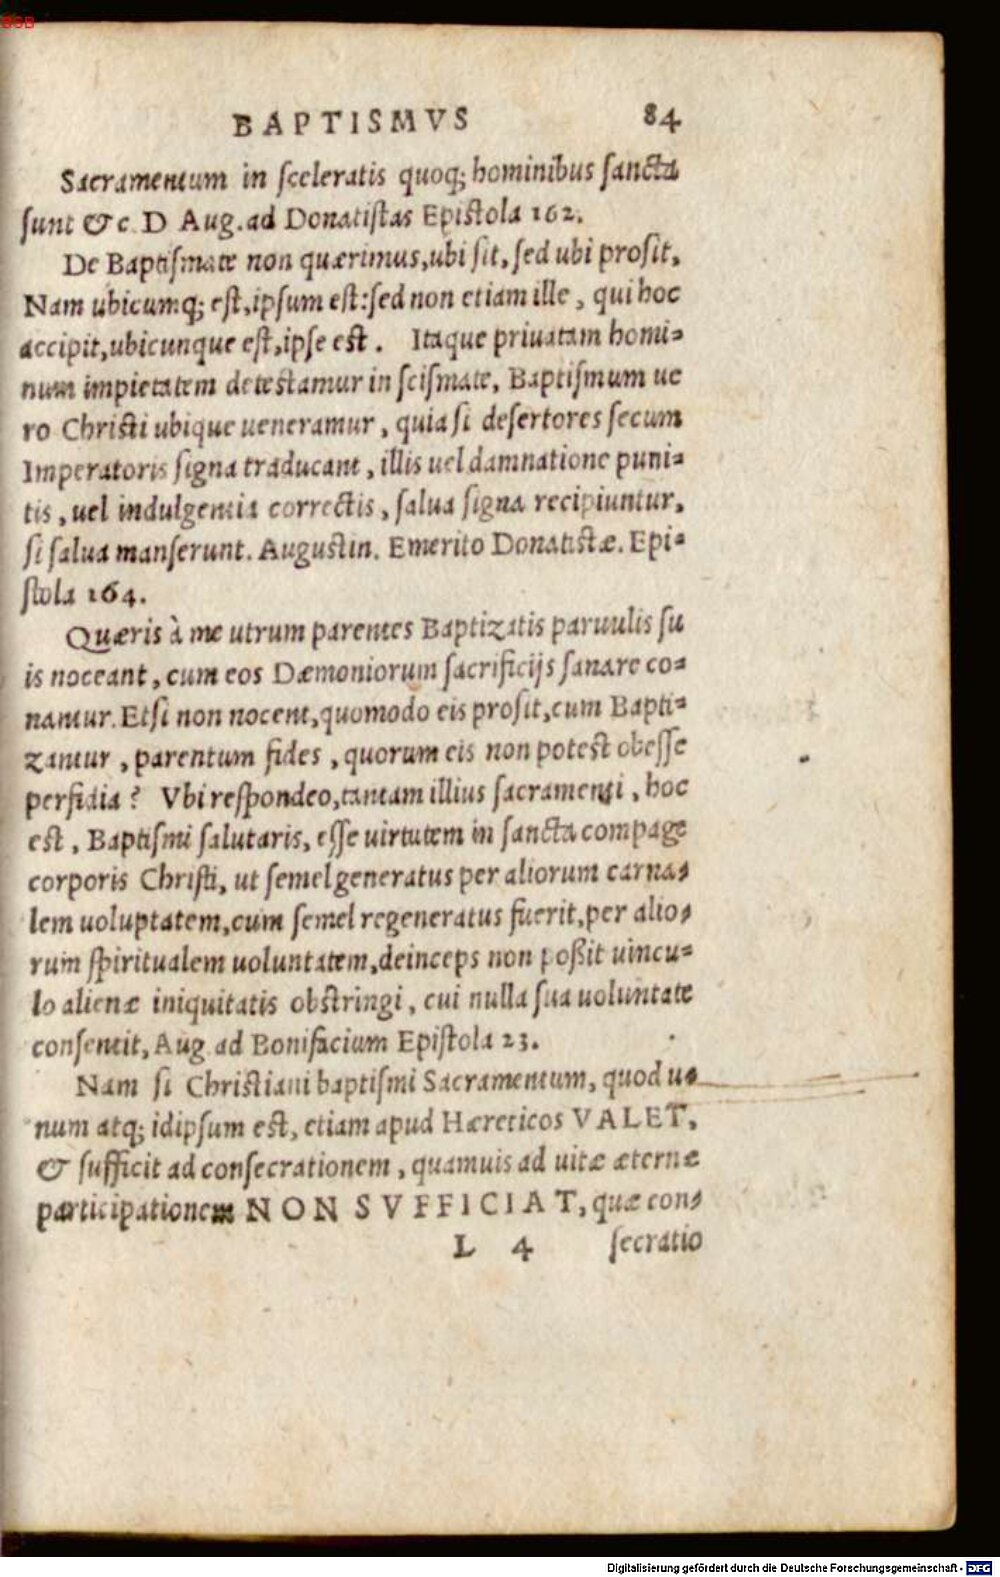 BSB
BAPTISMVS 84
Sacramentum in sceleratis quoq; hominibus sancta
sunt &c. D Aug. ad Donatistas Epistola 162.
De Baptismate non quærimus, ubi sit, sed ubi prosit,
Nam ubicumq; est, ipsum est: sed non etiam ille, qui hoc
accipit, ubicunque est, ipse est. Itaque priuatam homi-
num impietatem detestamur in scismate, Baptismum ue
ro Christi ubique ueneramur, quia si desertores secum
Imperatoris signa traducant, illis uel damnatione puni-
tis, uel indulgentia correctis, salua signa recipiuntur,
si salua manserunt. Augustin. Emerito Donatistæ. Epi-
stola 164.
Quæris à me utrum parentes Baptizatis paruulis su
is noceant, cum eos Dæmoniorum sacrificijs sanare co-
nantur. Etsi non nocent, quomodo eis prosit, cum Bapti-
zantur, parentum fides, quorum eis non potest obesse
perfidia? Vbi respondeo, tantam illius sacramenti, hoc
est, Baptismi salutaris, esse uirtutem in sancta compage
corporis Christi, ut semel generatus per aliorum carna-
lem uoluptatem, cum semel regeneratus fuerit, per alio-
rum spiritualem uoluntatem, deinceps non poßit uincu-
lo alienæ iniquitatis obstringi, cui nulla sua uoluntate
consentit, Aug ad Bonifacium Epistola 23.
Nam si Christiani baptismi Sacramentum, quod u-
num atq; idipsum est, etiam apud Hæreticos VALET,
& sufficit ad consecrationem, quamuis ad uitæ æternæ
participationem NON SVFFICIAT, quæ con-
L 4 secratio
Digitalisierung gefördert durch die Deutsche Forschungsgemeinschaft - DFG